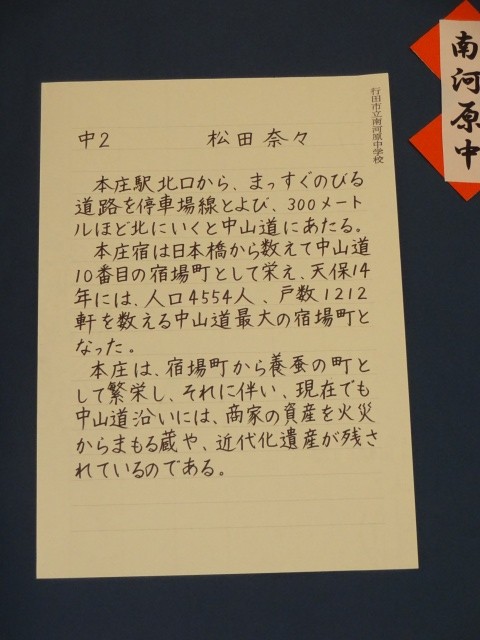 南河原中
行田市立南河原中学校
中2 松田奈々
本庄駅北口から、まっすぐのびる
道路を停車場線とよび、300メート
ルほど北にいくと中山道にあたる。
本庄宿は日本橋から数えて中山道
10番目の宿場町として栄え、天保14
年には、人口4554人、戸数1212
軒を数える中山道最大の宿場町と
なった。
本庄は、宿場町から養蚕の町と
して繁栄し、それに伴い、現在でも
中山道沿いには、商家の資産を火災
からまもる蔵や、近代化遺産が残さ
れているのである。